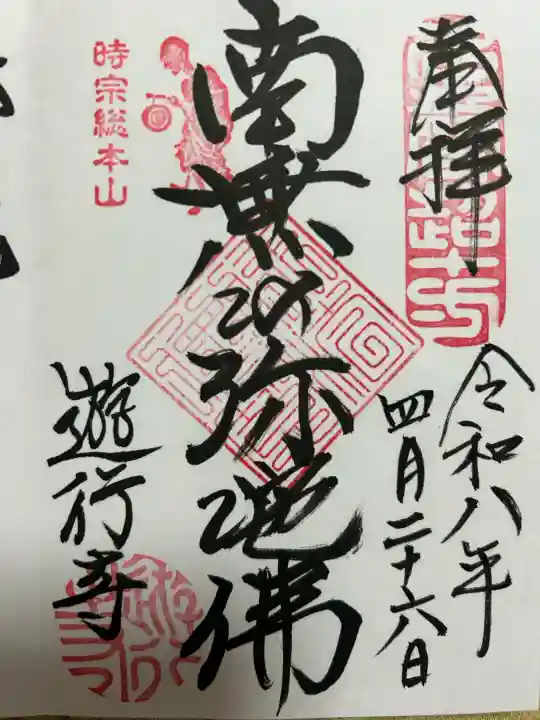 奉拝
令和八年
四月二十六日
南無阿弥陀佛
時宗総本山
遊行寺